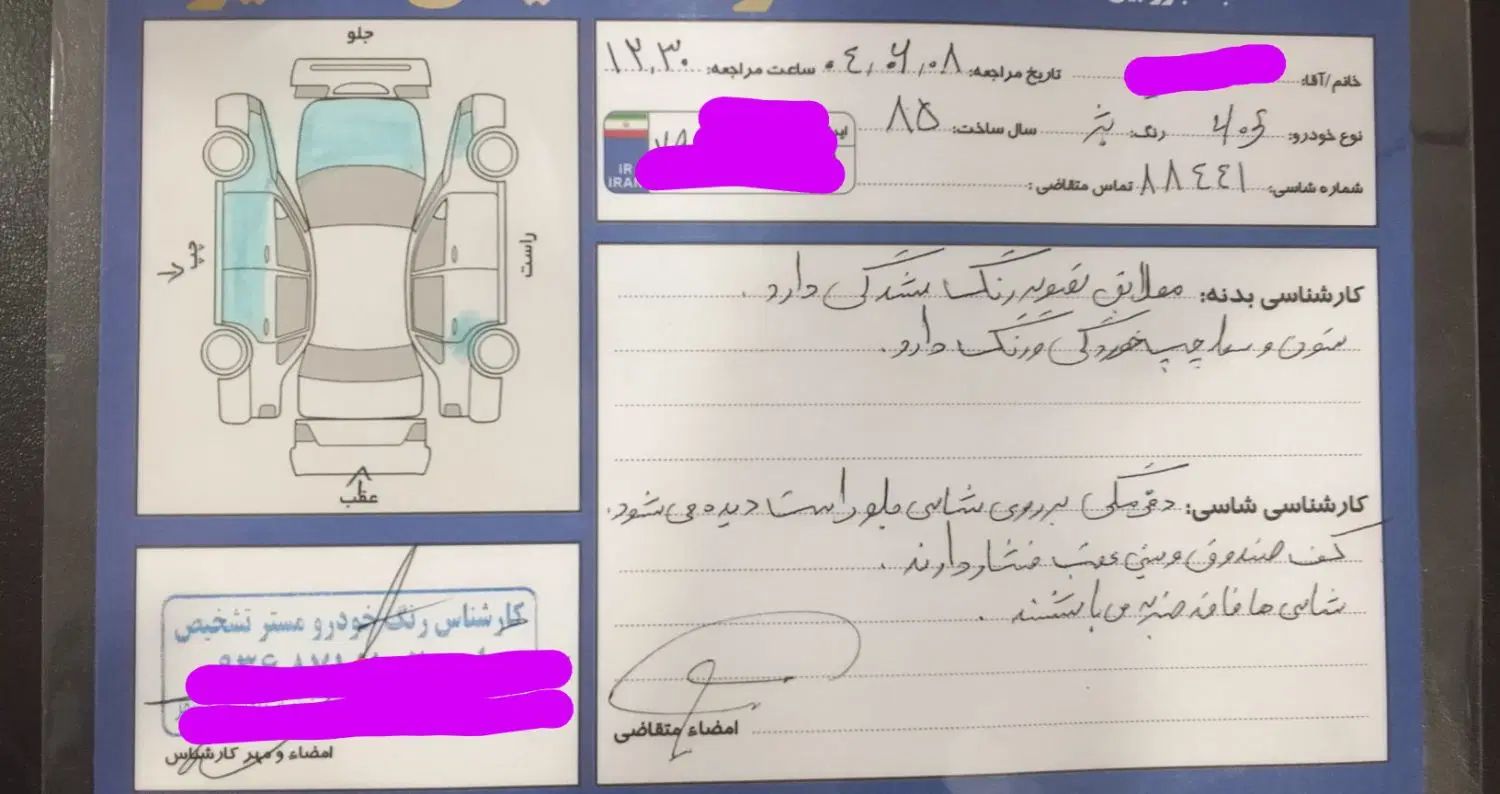 جلو
چپ
راست
عقب
خانم/آقا: تاریخ مراجعه: ۰۴,۰۶,۰۸ ساعت مراجعه: ۱۲,۳۰
نوع خودرو: ۴۰۵ رنگ: بژ سال ساخت: ۸۵
IR
IRAN
شماره شاسی: ۸۸۴۴۱ تماس متقاضی:
کارشناسی بدنه: مطابق تصویر رنگ شدگی دارد.
ستون و سقف چپ خوردگی و رنگ دارد.
کارشناسی شاسی: دفرمگی بر روی شاسی جلو راست دیده می شود.
کف صندوق و سینی عقب فشار دارند.
شاسی ها فاقد ضربه می باشند.
امضاء متقاضی
کارشناس رنگ خودرو مستر تشخیص
امضاء و مهر کارشناس